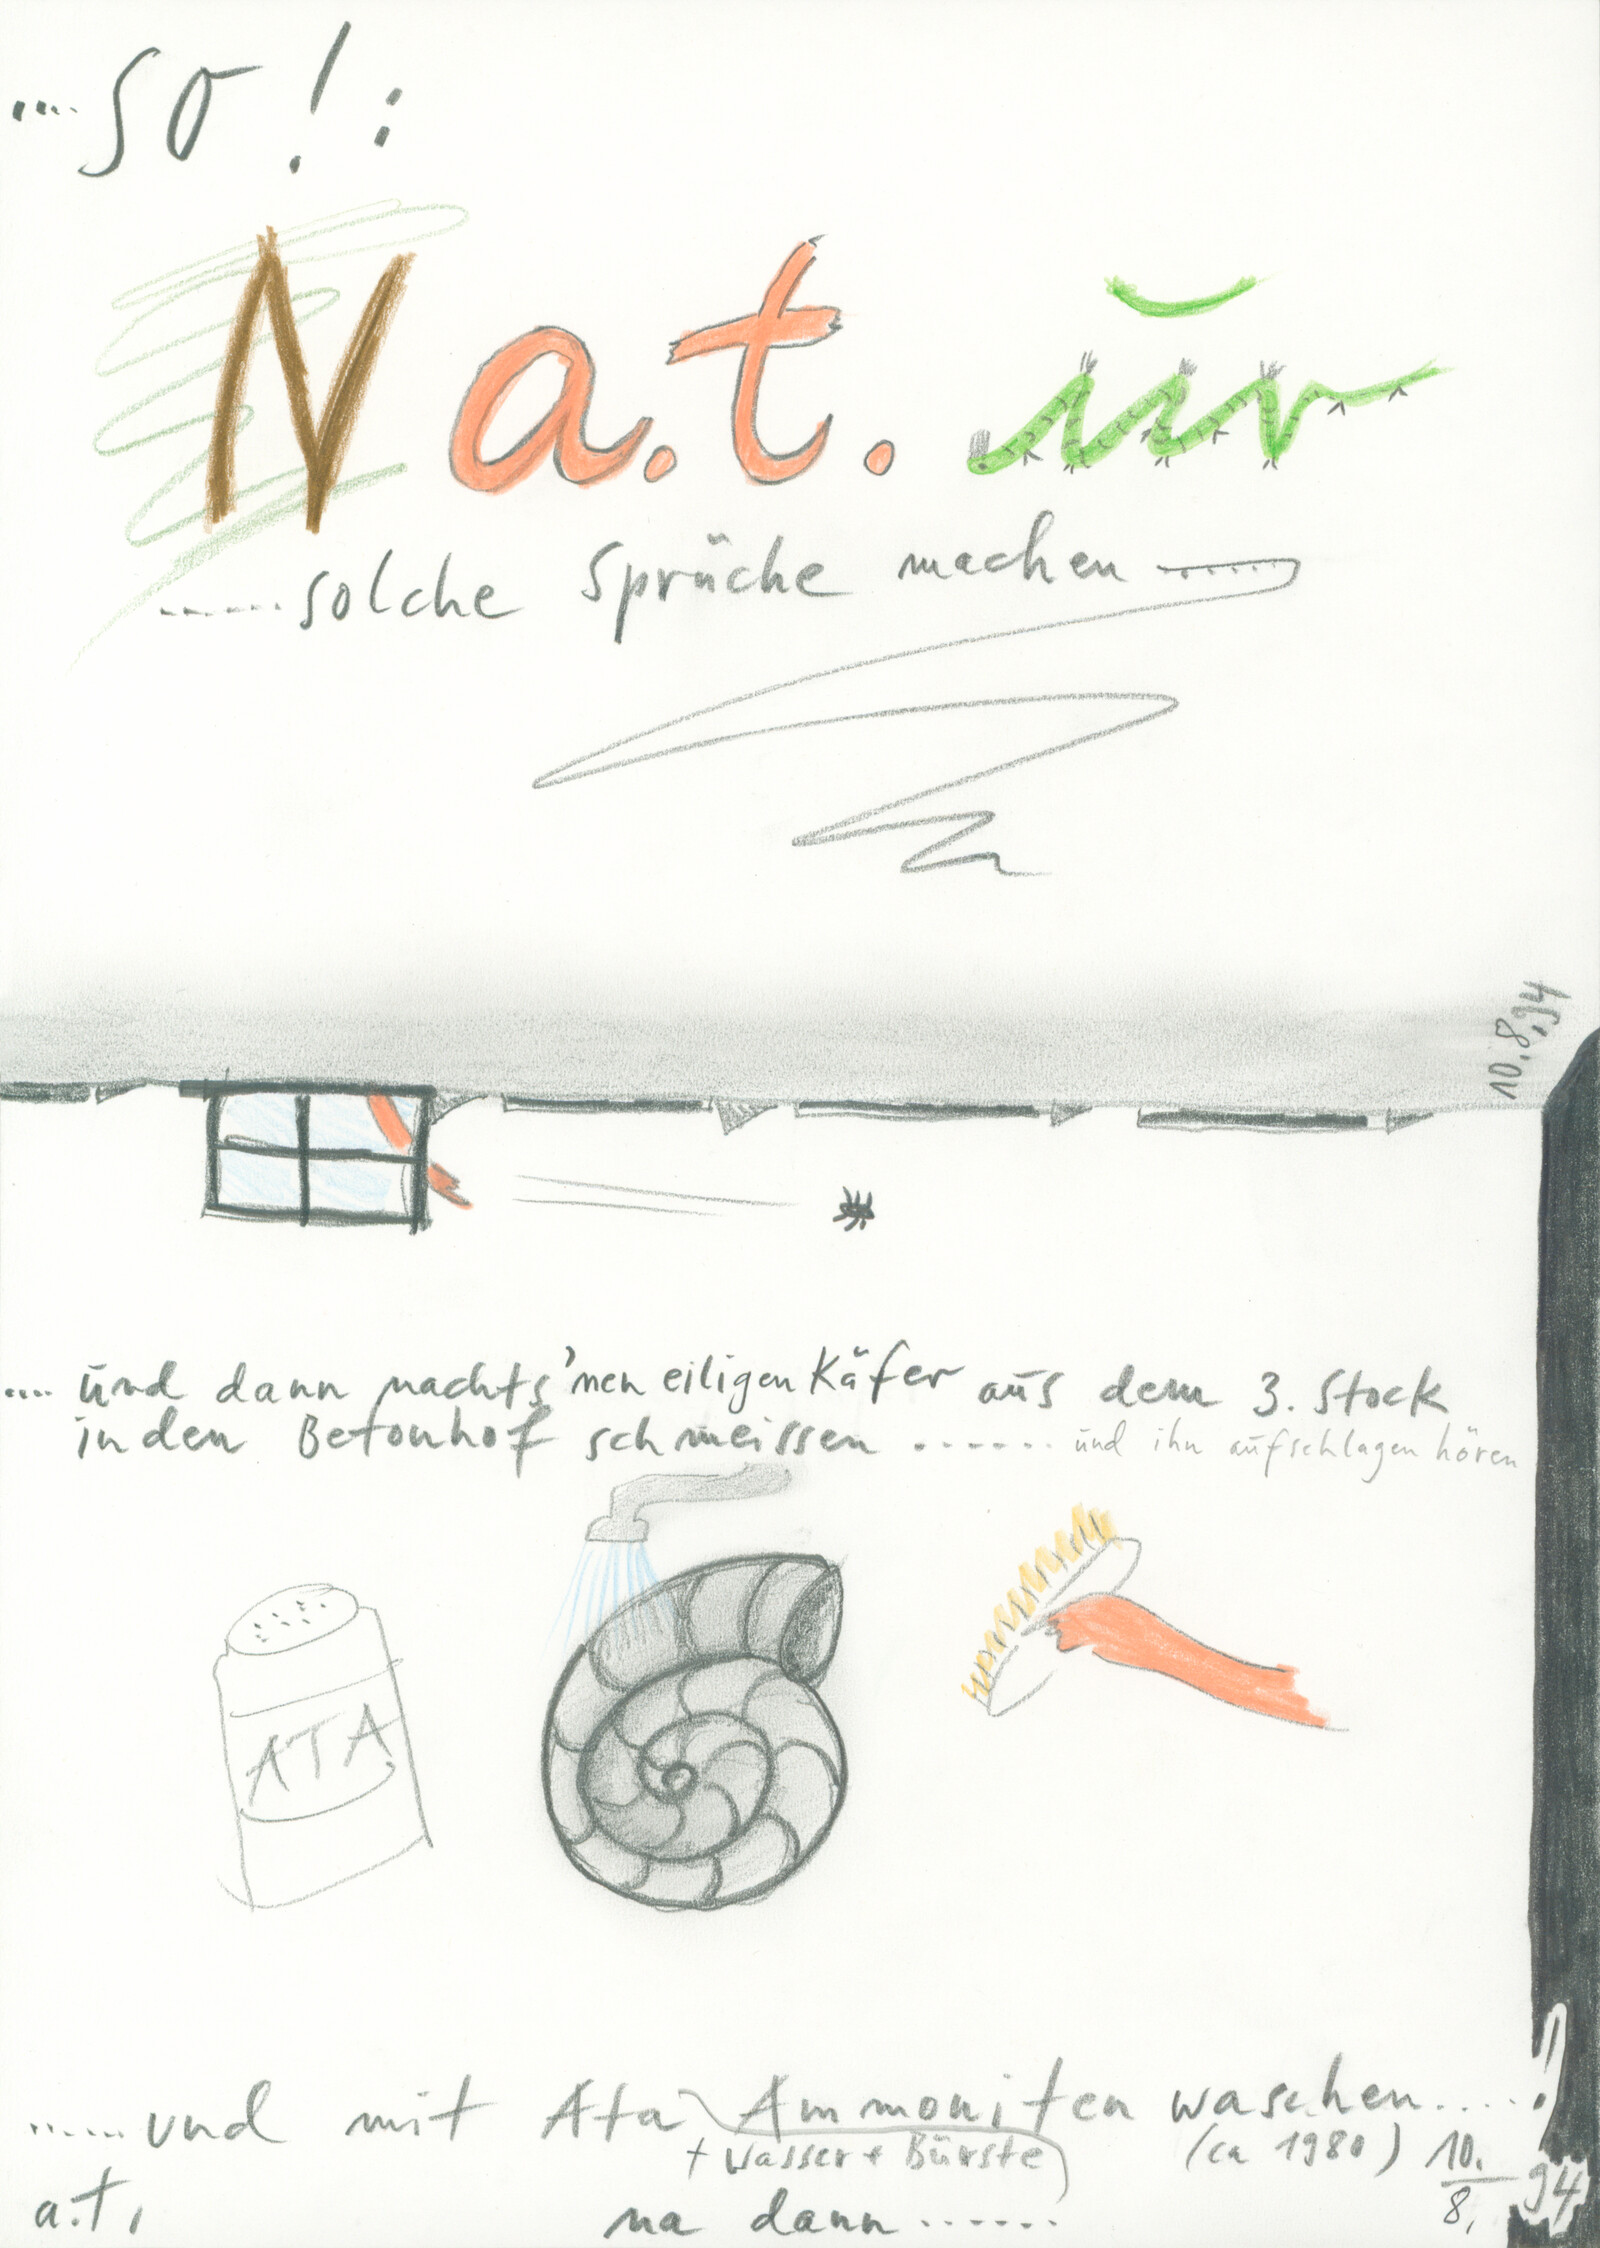 ....so!:
N a.t. ur
......solche Sprüche machen
10.8.94
.... und dann nachts 'nen eiligen Käfer aus dem 3. Stock
in den Betonhof schmeissen ...... und ihn aufschlagen hören
ATA
.....und mit Ata Ammoniten waschen.....!
+ Wasser + Bürste (ca 1980) 10./8. 94
a.t. na dann ......